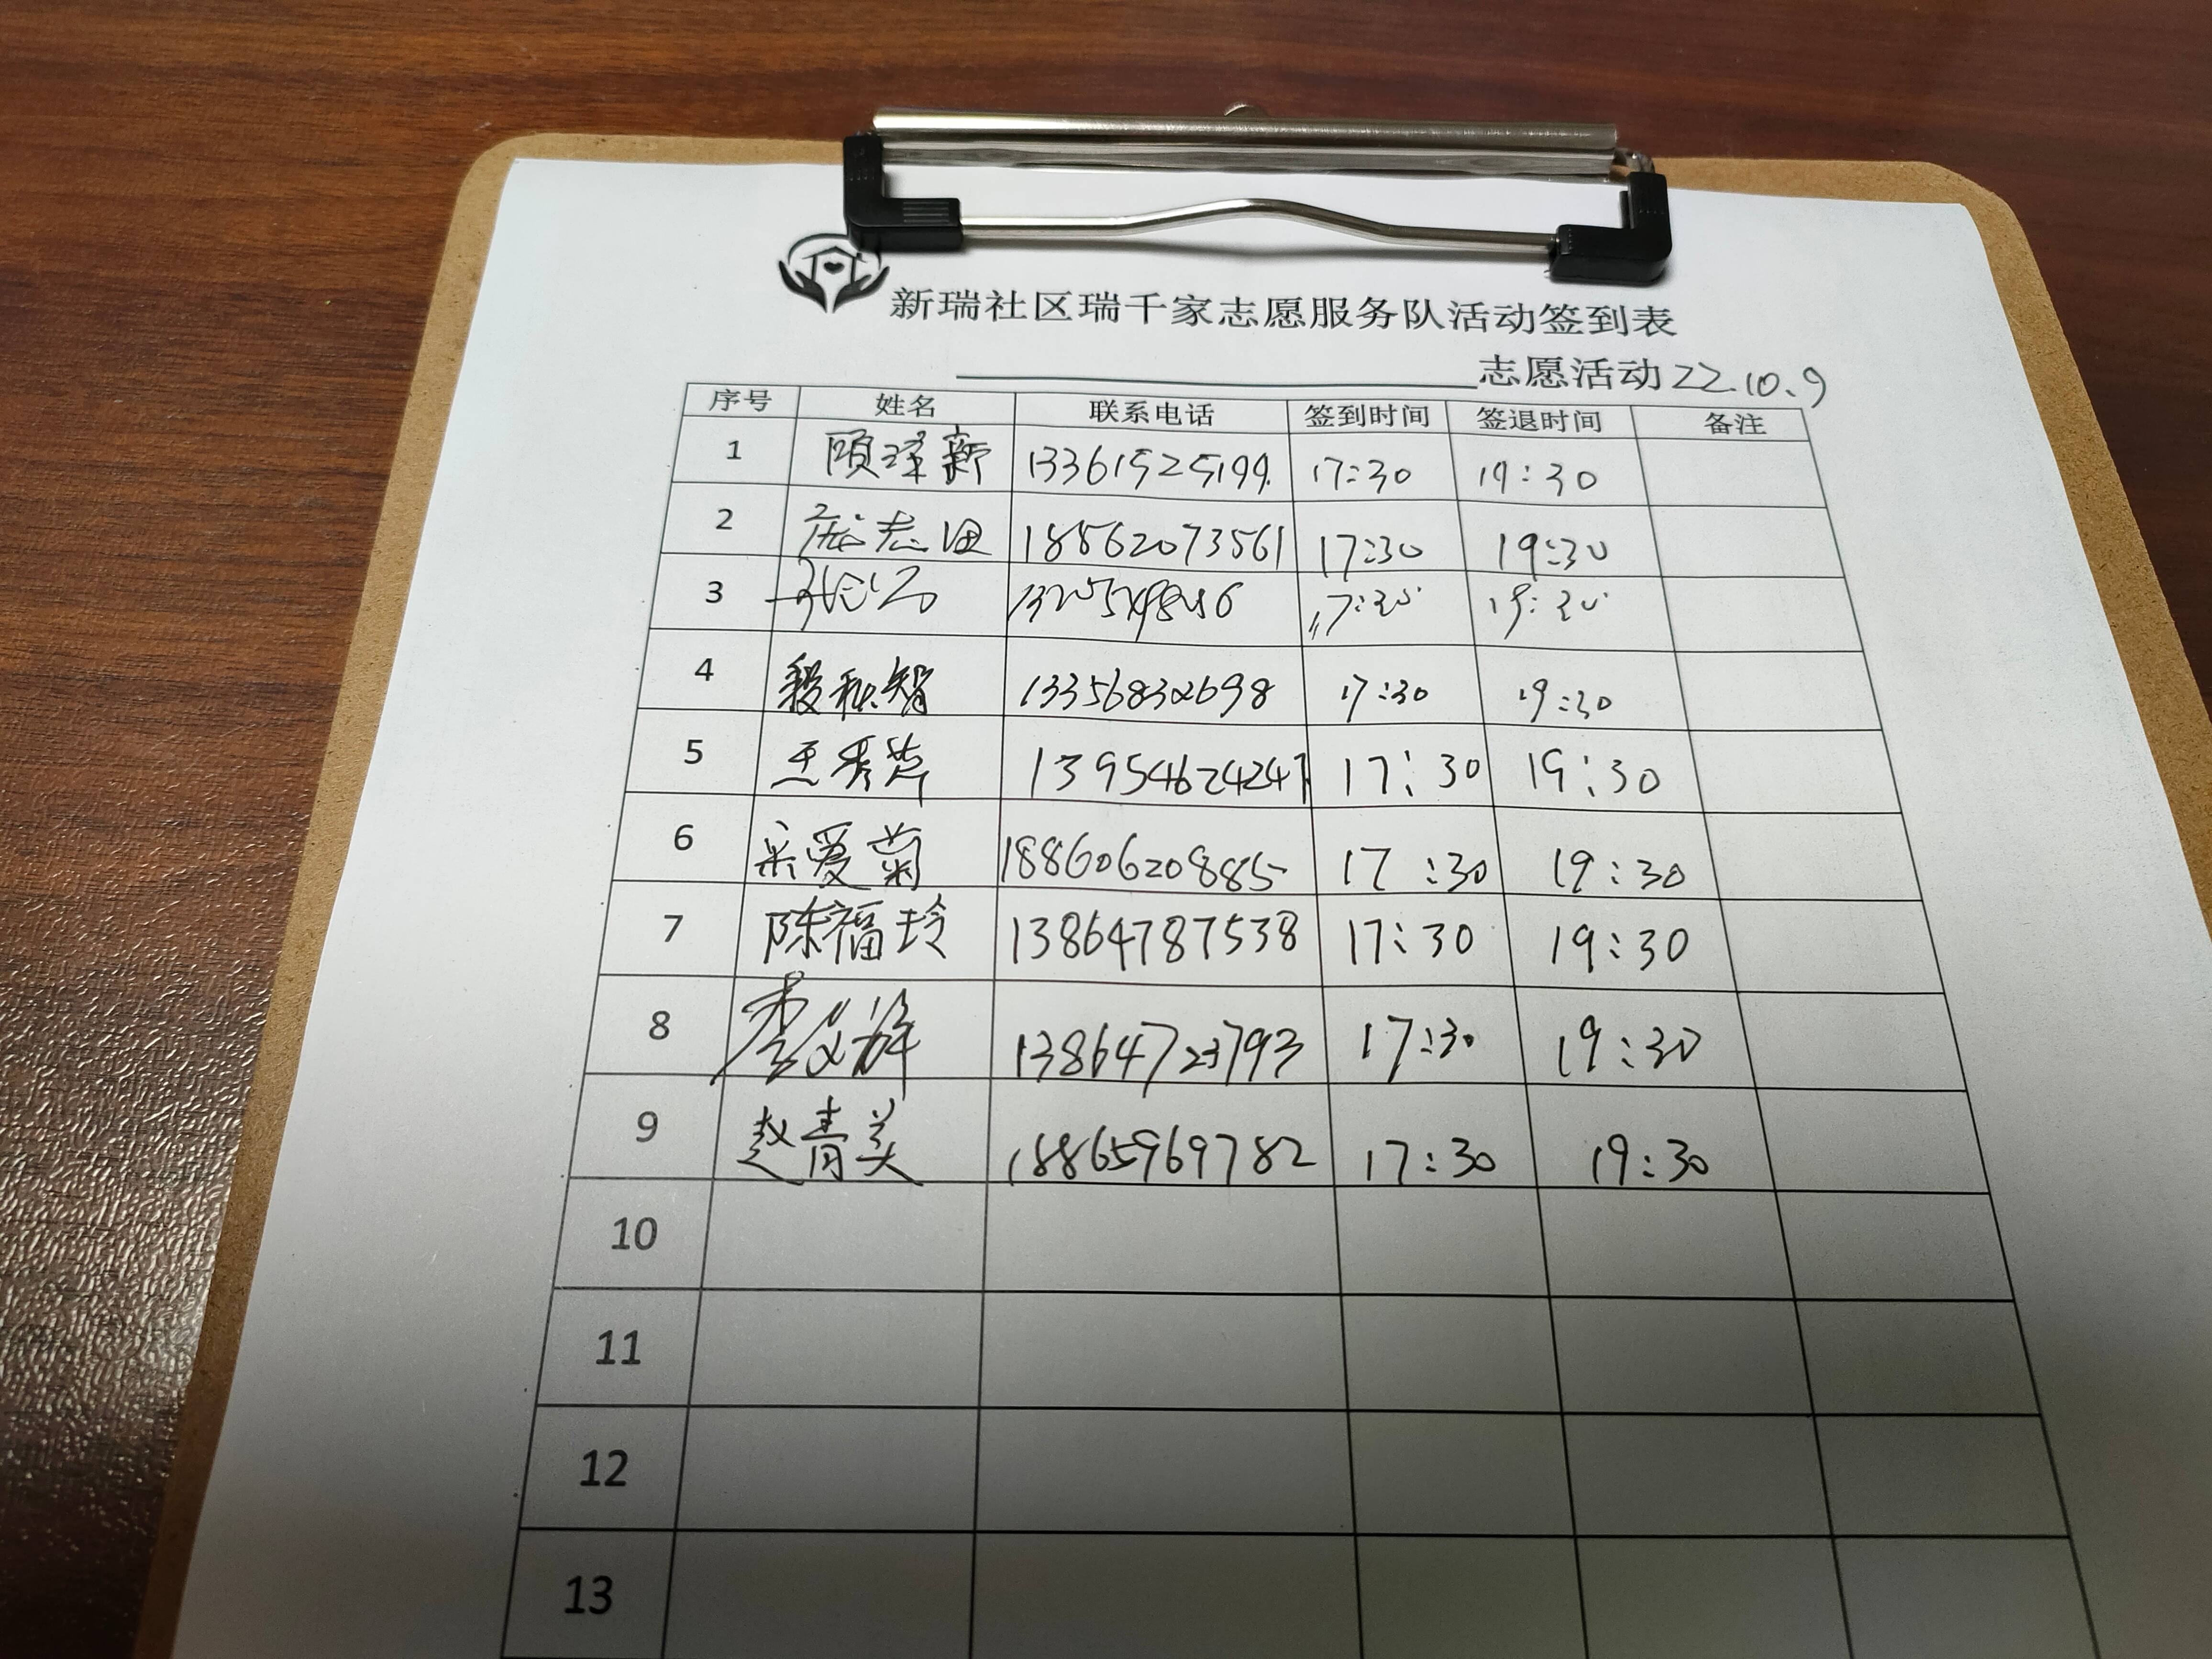 新瑞社区瑞千家志愿服务队活动签到表
志愿活动 22.10.9
序号 姓名 联系电话 签到时间 签退时间 备注
1 顾泽新 13361525199 17:30 19:30
2 18562073561 17:30 19:30
3 17:30 19:30
4 13356832698 17:30 19:30
5 王秀萍 13954624247 17:30 19:30
6 宋爱菊 18860620885 17:30 19:30
7 陈福玲 13864787538 17:30 19:30
8 李文辉 13864723793 17:30 19:30
9 赵青美 18865969782 17:30 19:30
10
11
12
13